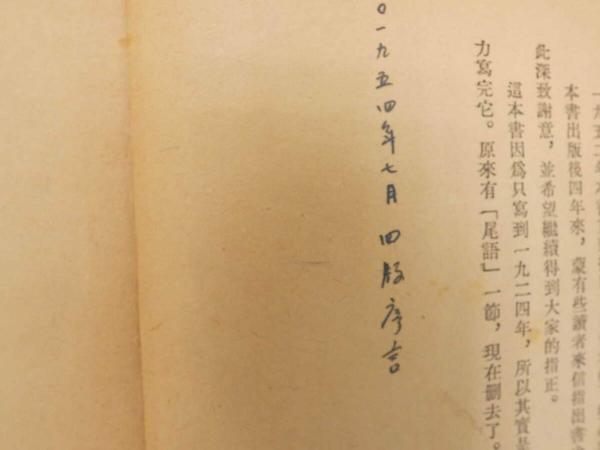 本書出版後四年來，蒙有些讀者來信指出書
此深致謝意，並希望繼續得到大家的指正。
這本書因爲只寫到一九二四年，所以其實是
力寫完它。原來有「尾語」一節，現在刪去了。
。一九五四年七月 四版序言